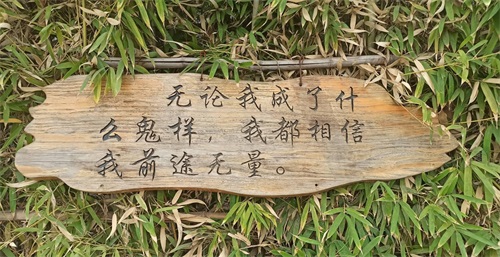 无论我成了什
么鬼样，我都相信
我前途无量。